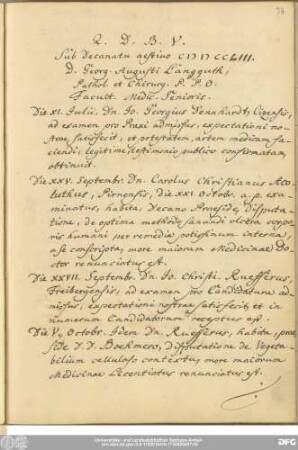 Q. D. B. V.
Sub Decanatu aestivo CIƆIƆCCLIII.
D. Georg. Augusti Langguth,
Pathol. et Chirurg. P. P. O.
Facult. Medic. Senioris.
Die XI. Julii. Dn. Jo. Georgius
ad examen pro Praxi admissus, expectationi no-
strae satisfecit, et potestatem, artem medicam fa-
ciendi, legitime testimonio publico confirmatam,
obtinuit.
Die XXV. Septembr. Dn. Carolus Christianus Aco-
luthus, Pirnensis, die XXI. Octobr. a. p. exa-
minatus, habita, Decano Praeside, Disputa-
tione, de optima methodo sanandi ulcera corpo-
ris humani per remedia potissimum interna,
a se conscripta, more maiorum Medicinae Do-
ctor renunciatus est.
Die XXVII. Septembr. Dn. Jo. Christi. Ruefferus,
Freibergensis, ad examen pro Candidatura ad-
missus, expectationi nostrae satisfecit, et in
numerum Candidatorum receptus est.
Die V. Octobr. Idem Dn. Ruefferus, habita, prae-
side D. D. Boehmero, Disputatione de Vegeta-
bilium celluloso contextu, more maiorum
Medicinae Licentiatus renunciatus est.
Universitäts- und Landesbibliothek Sachsen-Anhalt
DFG